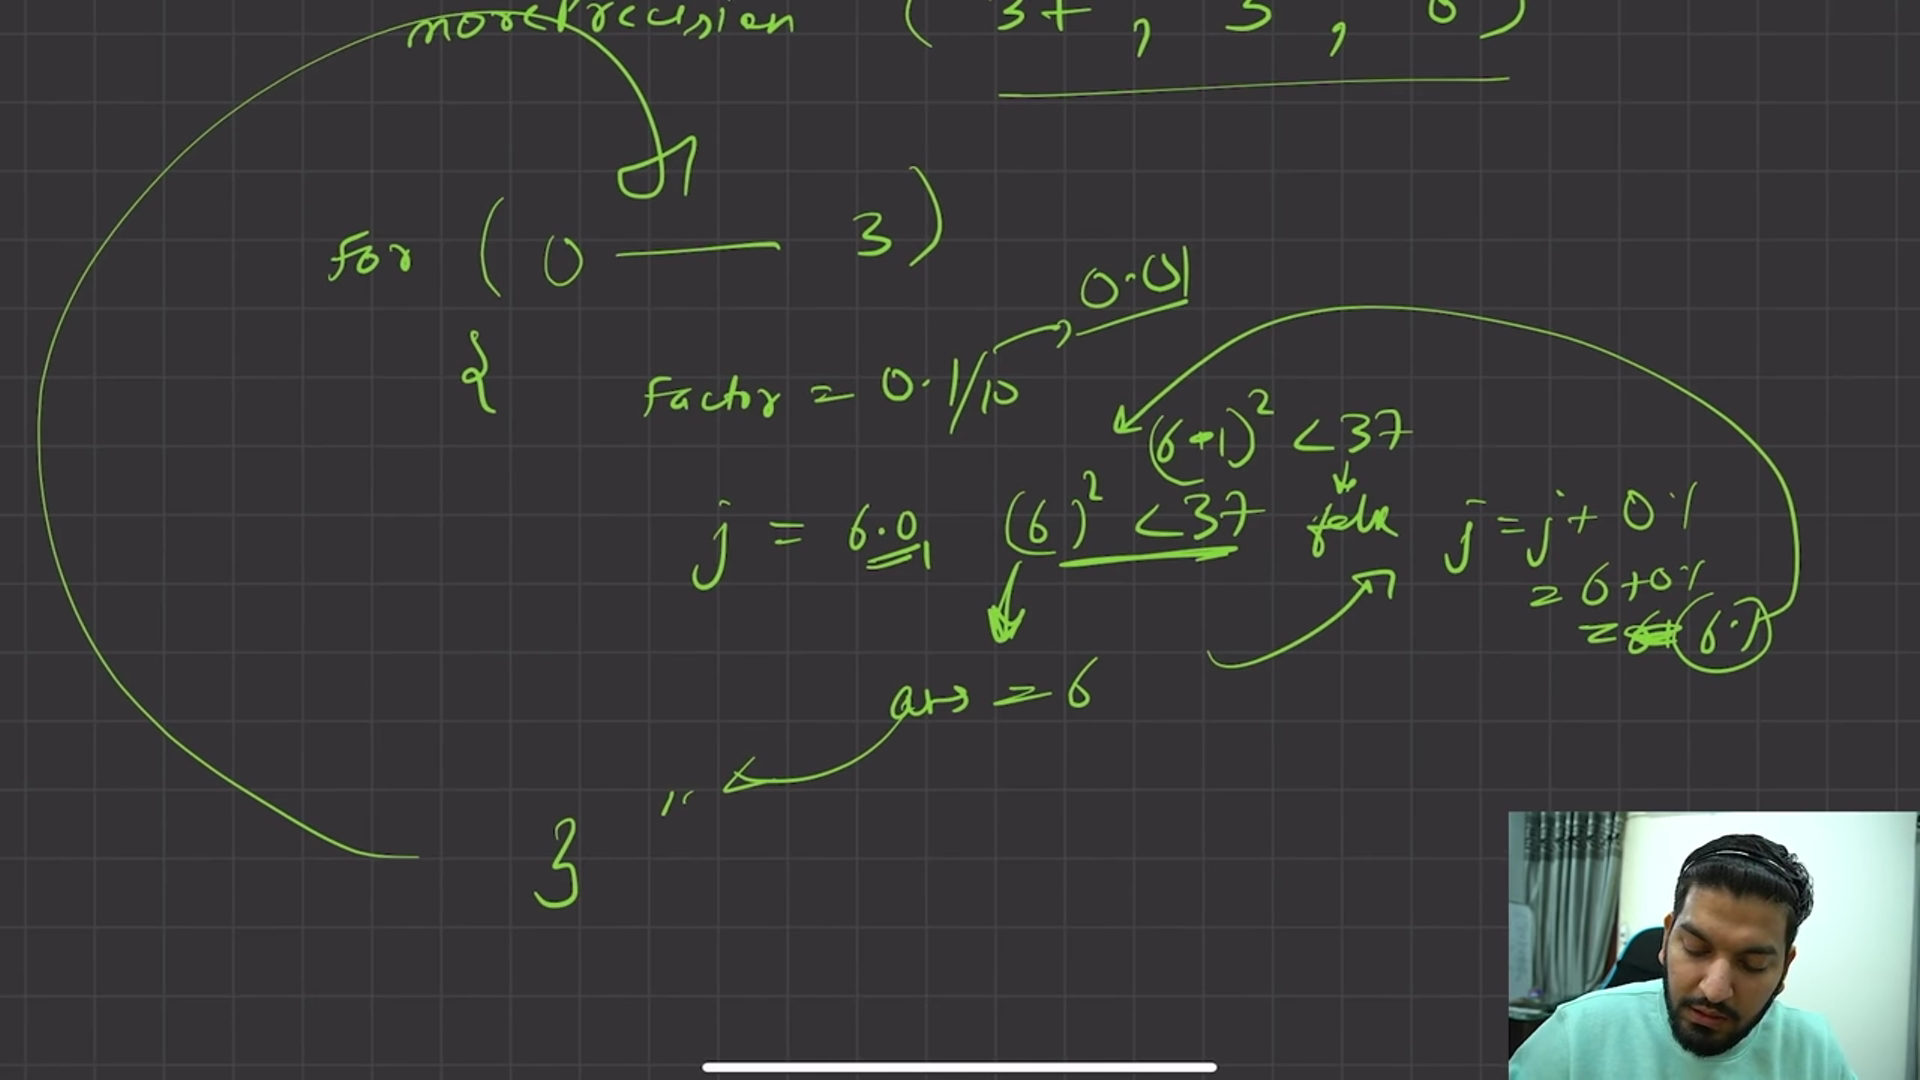 morePrecision ( 37 , 3 , 6 )
for ( 0 — 3 )
0.01
{
factor = 0.1/10
(6.1)² < 37
j = 6.01 (6)² < 37 false j = j + 0.1
= 6 + 0.1
= 6.1
ans = 6
}